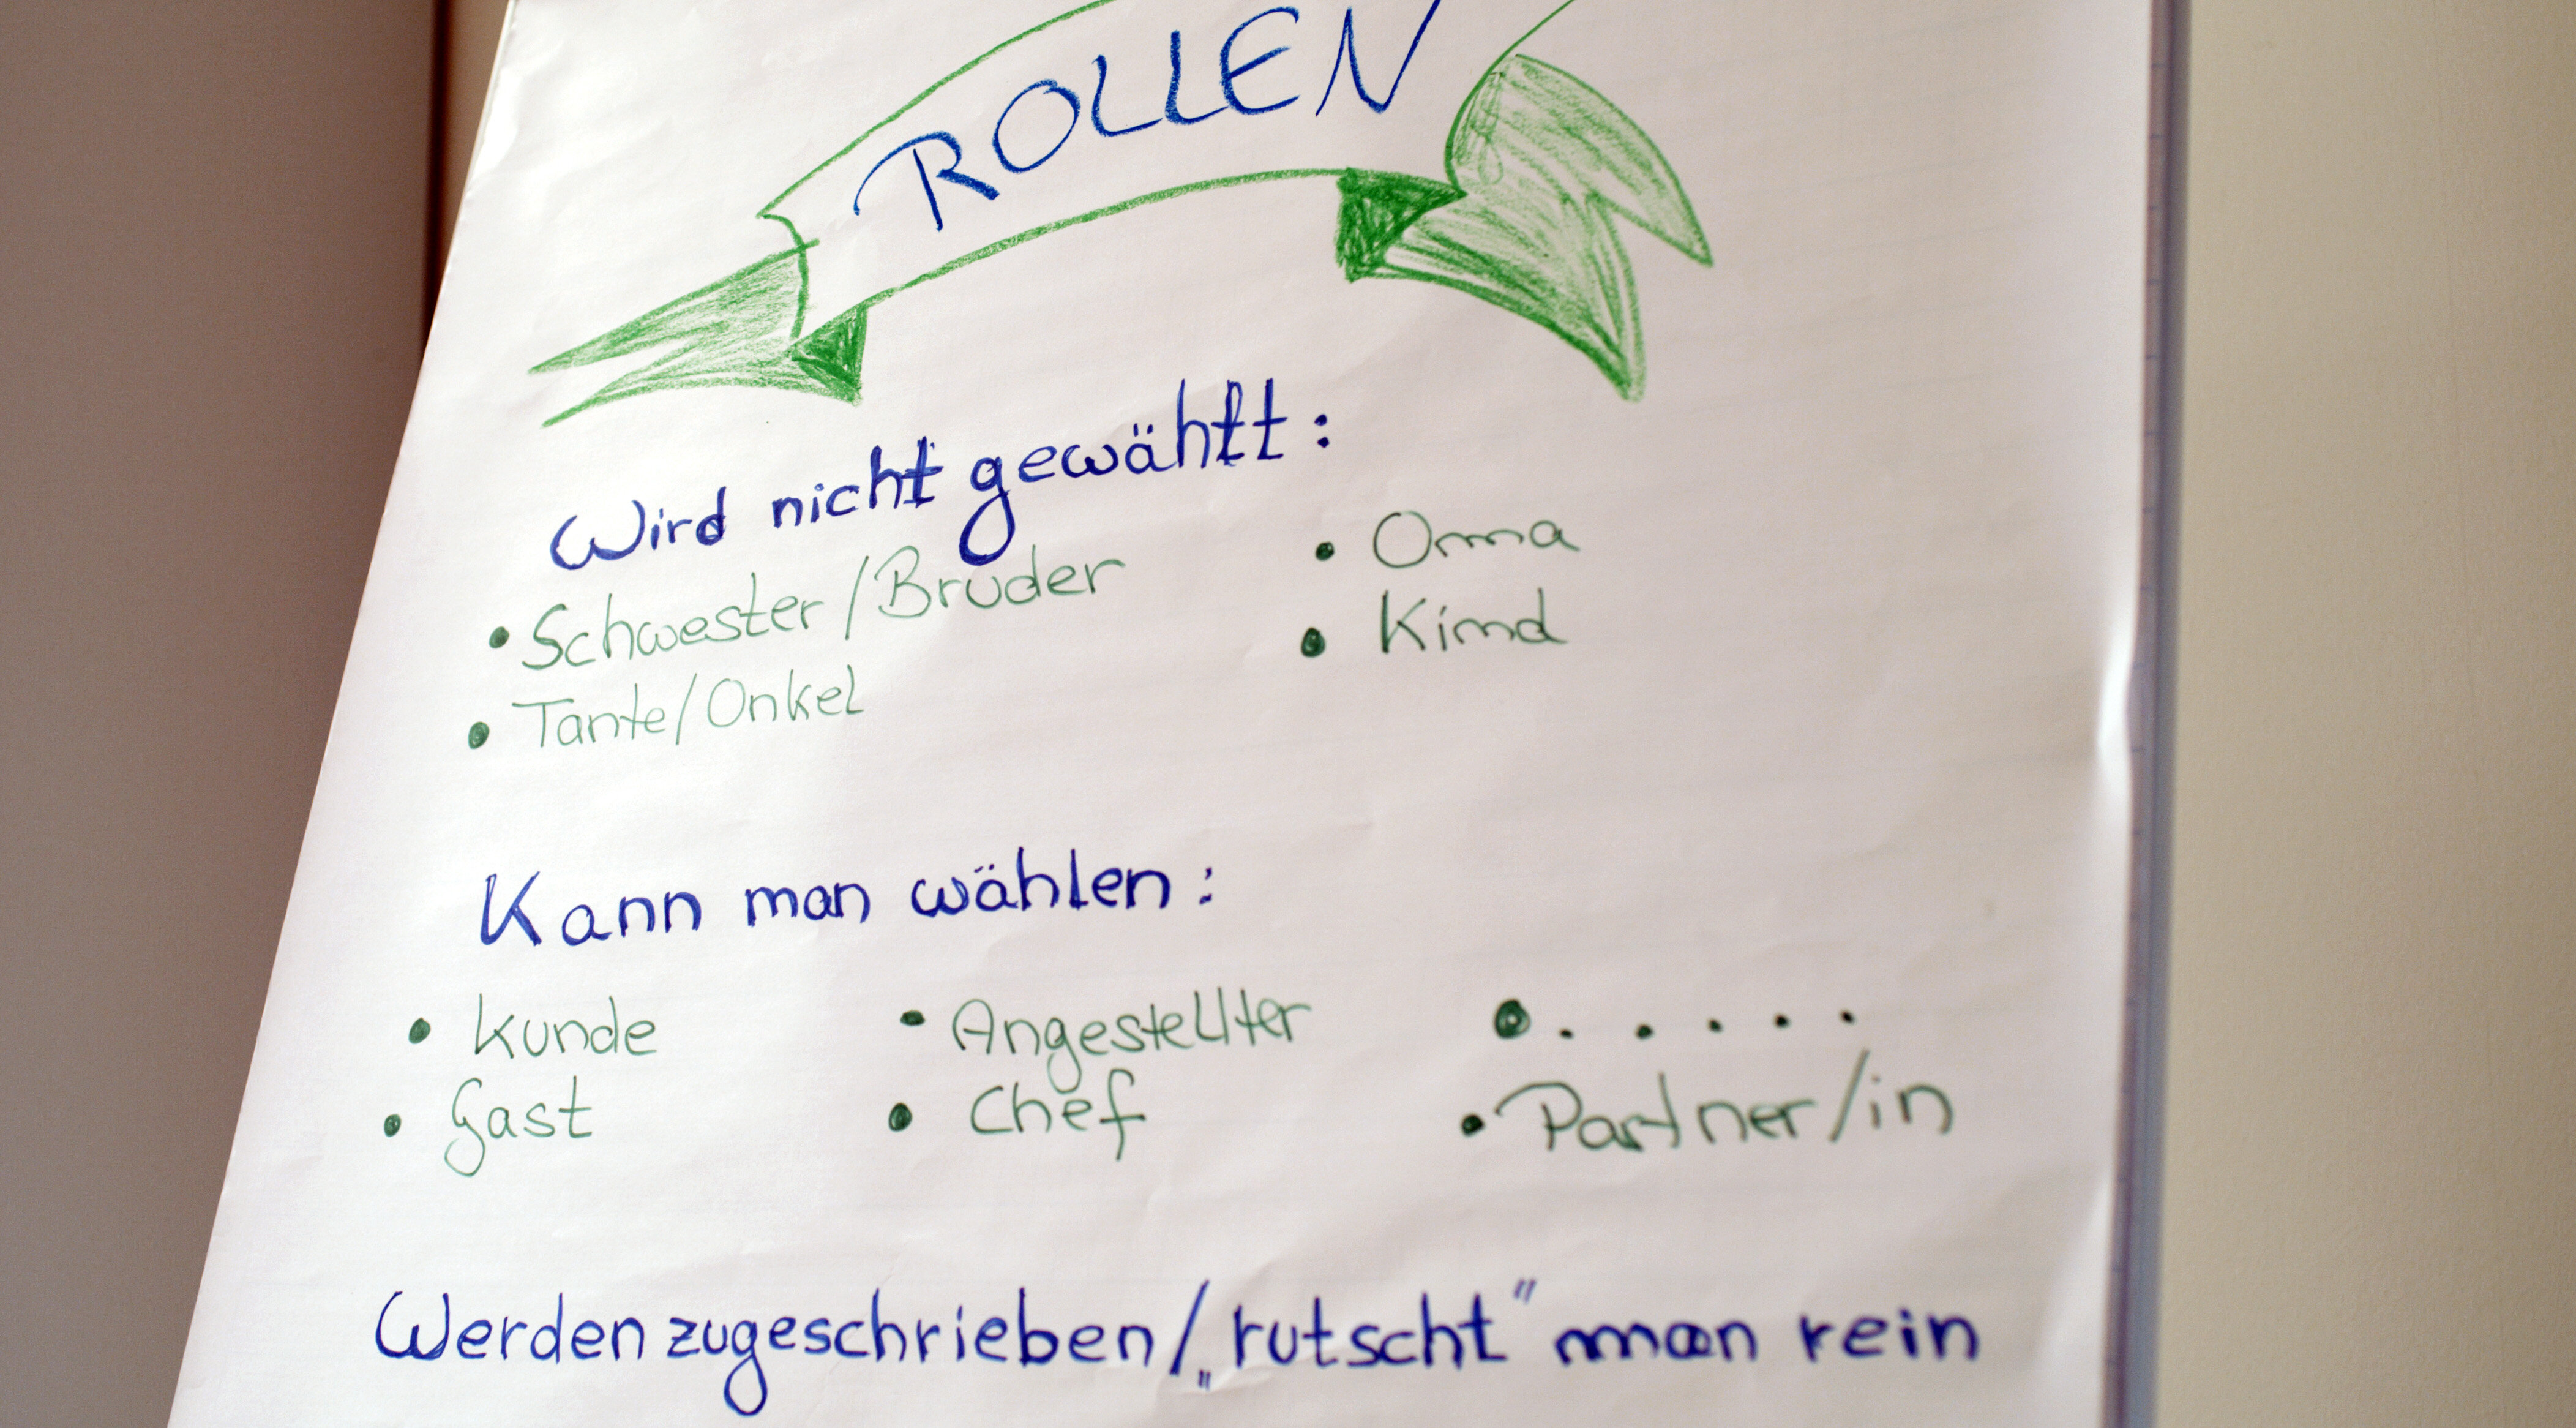 ROLLEN
Wird nicht gewählt:
• Schwester/Bruder
• Tante/Onkel
• Oma
• Kind
Kann man wählen:
• Kunde
• Gast
• Angestellter
• Chef
• . . . . .
• Partner/in
Werden zugeschrieben/„rutscht" man rein